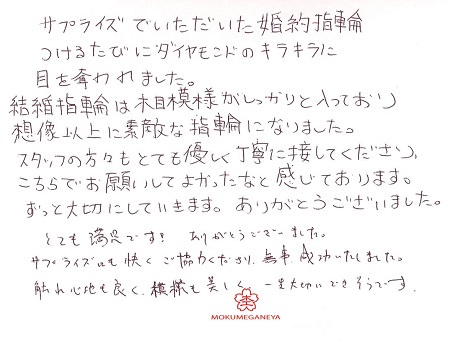 サプライズでいただいた婚約指輪
つけるたびにダイヤモンドのキラキラに
目を奪われました。
結婚指輪は木目模様がしっかりと入っており
想像以上に素敵な指輪になりました。
スタッフの方々もとても優しく丁寧に接してくださり、
こちらでお願いしてよかったなと感じております。
ずっと大切にしていきます。ありがとうございました。
とても満足です！ ありがとうございました。
サプライズにも快くご協力くださり、無事成功いたしました。
触れ心地も良く、模様も美しく、一生大切にできそうです。
MOKUMEGANEYA